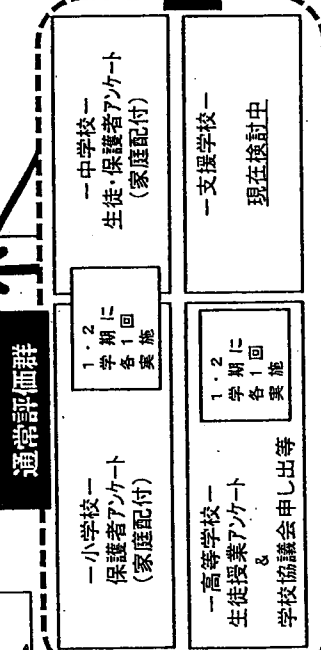 通常評価群
－小学校－
保護者アンケート
(家庭配付)
1・2
学期に
各1回
実施
－中学校－
生徒・保護者アンケート
(家庭配付)
－高等学校－
生徒授業アンケート
&
学校協議会申し出等
1・2
学期に
各1回
実施
－支援学校－
現在検討中